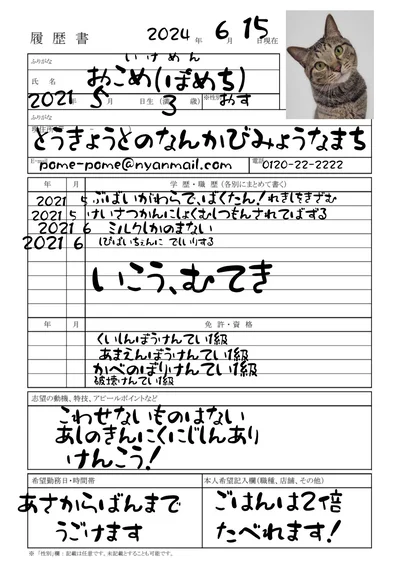 履歴書 2024年 6月 15日現在
ふりがな いけめん
氏名 おこめ(ぽめち)
2021年 5月 3日生(歳) ※性別 おす
ふりがな
とうきょうとのなんかびみょうなまち
E-mail pome-pome@nyanmail.com 電話 0120-22-2222
年 月 学歴・職歴(各別にまとめて書く)
2021 5 ぶばいがわらで、ばくたん!れきしをきざむ
2021 5 けいさつかんにしょくむしつもんされてばずる
2021 6 ミルクしかのまない
2021 6 ていりする
いこう、むてき
年 月 免許・資格
くいしんぼうけんてい1級
あまえんぼうけんてい1級
かべのぼりけんてい1級
破壊けんてい1級
志望の動機、特技、アピールポイントなど
こわせないものはない
あしのきんにくにじしんあり
けんこう!
希望勤務日・時間帯
あさからばんまで
うごけます
本人希望記入欄(職種、店舗、その他)
ごはんは2倍
たべれます!
※「性別」欄:記載は任意です。未記載とすることも可能です。